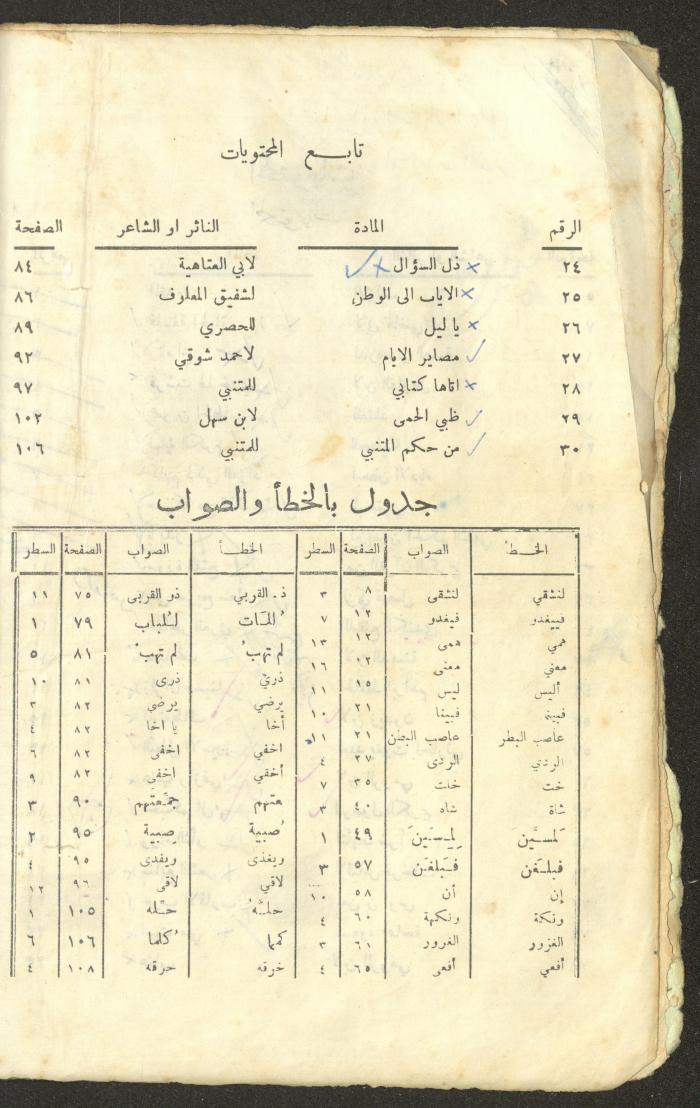 تابع المحتويات
الرقم المادة الناثر او الشاعر الصفحة
٢٤ ذل السؤال لابي العتاهية ٨٤
٢٥ الاياب الى الوطن لشفيق المعلوف ٨٦
٢٦ يا ليل للحصري ٨٩
٢٧ مصاير الايام لاحمد شوقي ٩٢
٢٨ اتاها كتابي للمتنبي ٩٧
٢٩ ظبي الحمى لابن سهل ١٠٢
٣٠ من حكم المتنبي للمتنبي ١٠٦
جدول بالخطأ والصواب
الخطأ الصواب الصفحة السطر الخطأ الصواب الصفحة السطر
لنشقي لنشقى ٨ ٣ ذ. القربي ذو القربى ٧٥ ١١
فييغدو فيغدو ١٢ ٧ للباب ٧٩ ١
همي همى ١٢ ١٣ لم تهب لم تهب ٨١ ٥
معني معنى ١٢ ١٦ ذري ذرى ٨١ ١٠
أليس ليس ١٥ ١١ يرضي يرضى ٨٢ ٣
فبينا ٢١ ١٠ أخا يا اخا ٨٢ ٤
عاصب البطر عاصب البطن ٢١ ١١ اخفي اخفى ٨٢ ٦
الردي الردى ٢٧ ٤ أخفي اخفي ٨٢ ٩
خت خلت ٣٥ ٧ عتهم جمّعتهم ٩٠ ٣
شاة شاه ٤٠ ٣ صبية صبية ٩٥ ٢
٤٩ ١ ويغذى ويفدى ٩٥ ٤
فبلغن ٥٧ ٣ لاقي لاقى ٩٦ ١٢
إن أن ٥٨ ١٠ حلّه ١٠٥ ١
ونكة ونكهة ٦٠ ٤ كلما ١٠٦ ٦
الغزور الغرور ٦١ ٣ خرقه حرقه ١٠٨ ٤
أفعي أفعى ٦٥ ٤